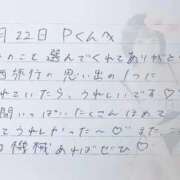 月22日 Pくんへ
のこと選んでくれてありがと
西旅行の思い出の1つに
れていたら、うれしいです♡
間いっぱいたくさんほめて
てうれしかった〜♡ また
機械あればぜひ♡